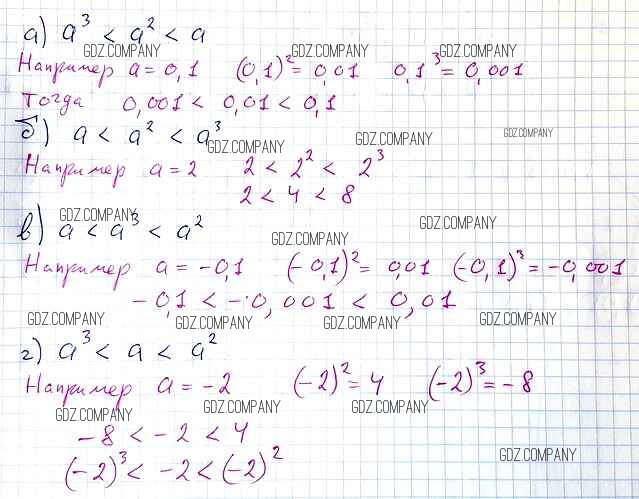 а) a³ < a² < a
GDZ.COMPANY GDZ.COMPANY GDZ.COMPANY
Например a = 0,1 (0,1)² = 0,01 0,1³ = 0,001
Тогда 0,001 < 0,01 < 0,1
б) a < a² < a³
GDZ.COMPANY GDZ.COMPANY GDZ.COMPANY
Например a = 2 2 < 2² < 2³
2 < 4 < 8
GDZ.COMPANY GDZ.COMPANY
в) a < a³ < a²
GDZ.COMPANY
Например a = -0,1 (-0,1)² = 0,01 (-0,1)³ = -0,001
-0,1 < -0,001 < 0,01
GDZ.COMPANY GDZ.COMPANY GDZ.COMPANY GDZ.COMPANY
г) a³ < a < a²
Например a = -2 (-2)² = 4 (-2)³ = -8
GDZ.COMPANY GDZ.COMPANY GDZ.COMPANY
-8 < -2 < 4
GDZ.COMPANY
(-2)³ < -2 < (-2)²